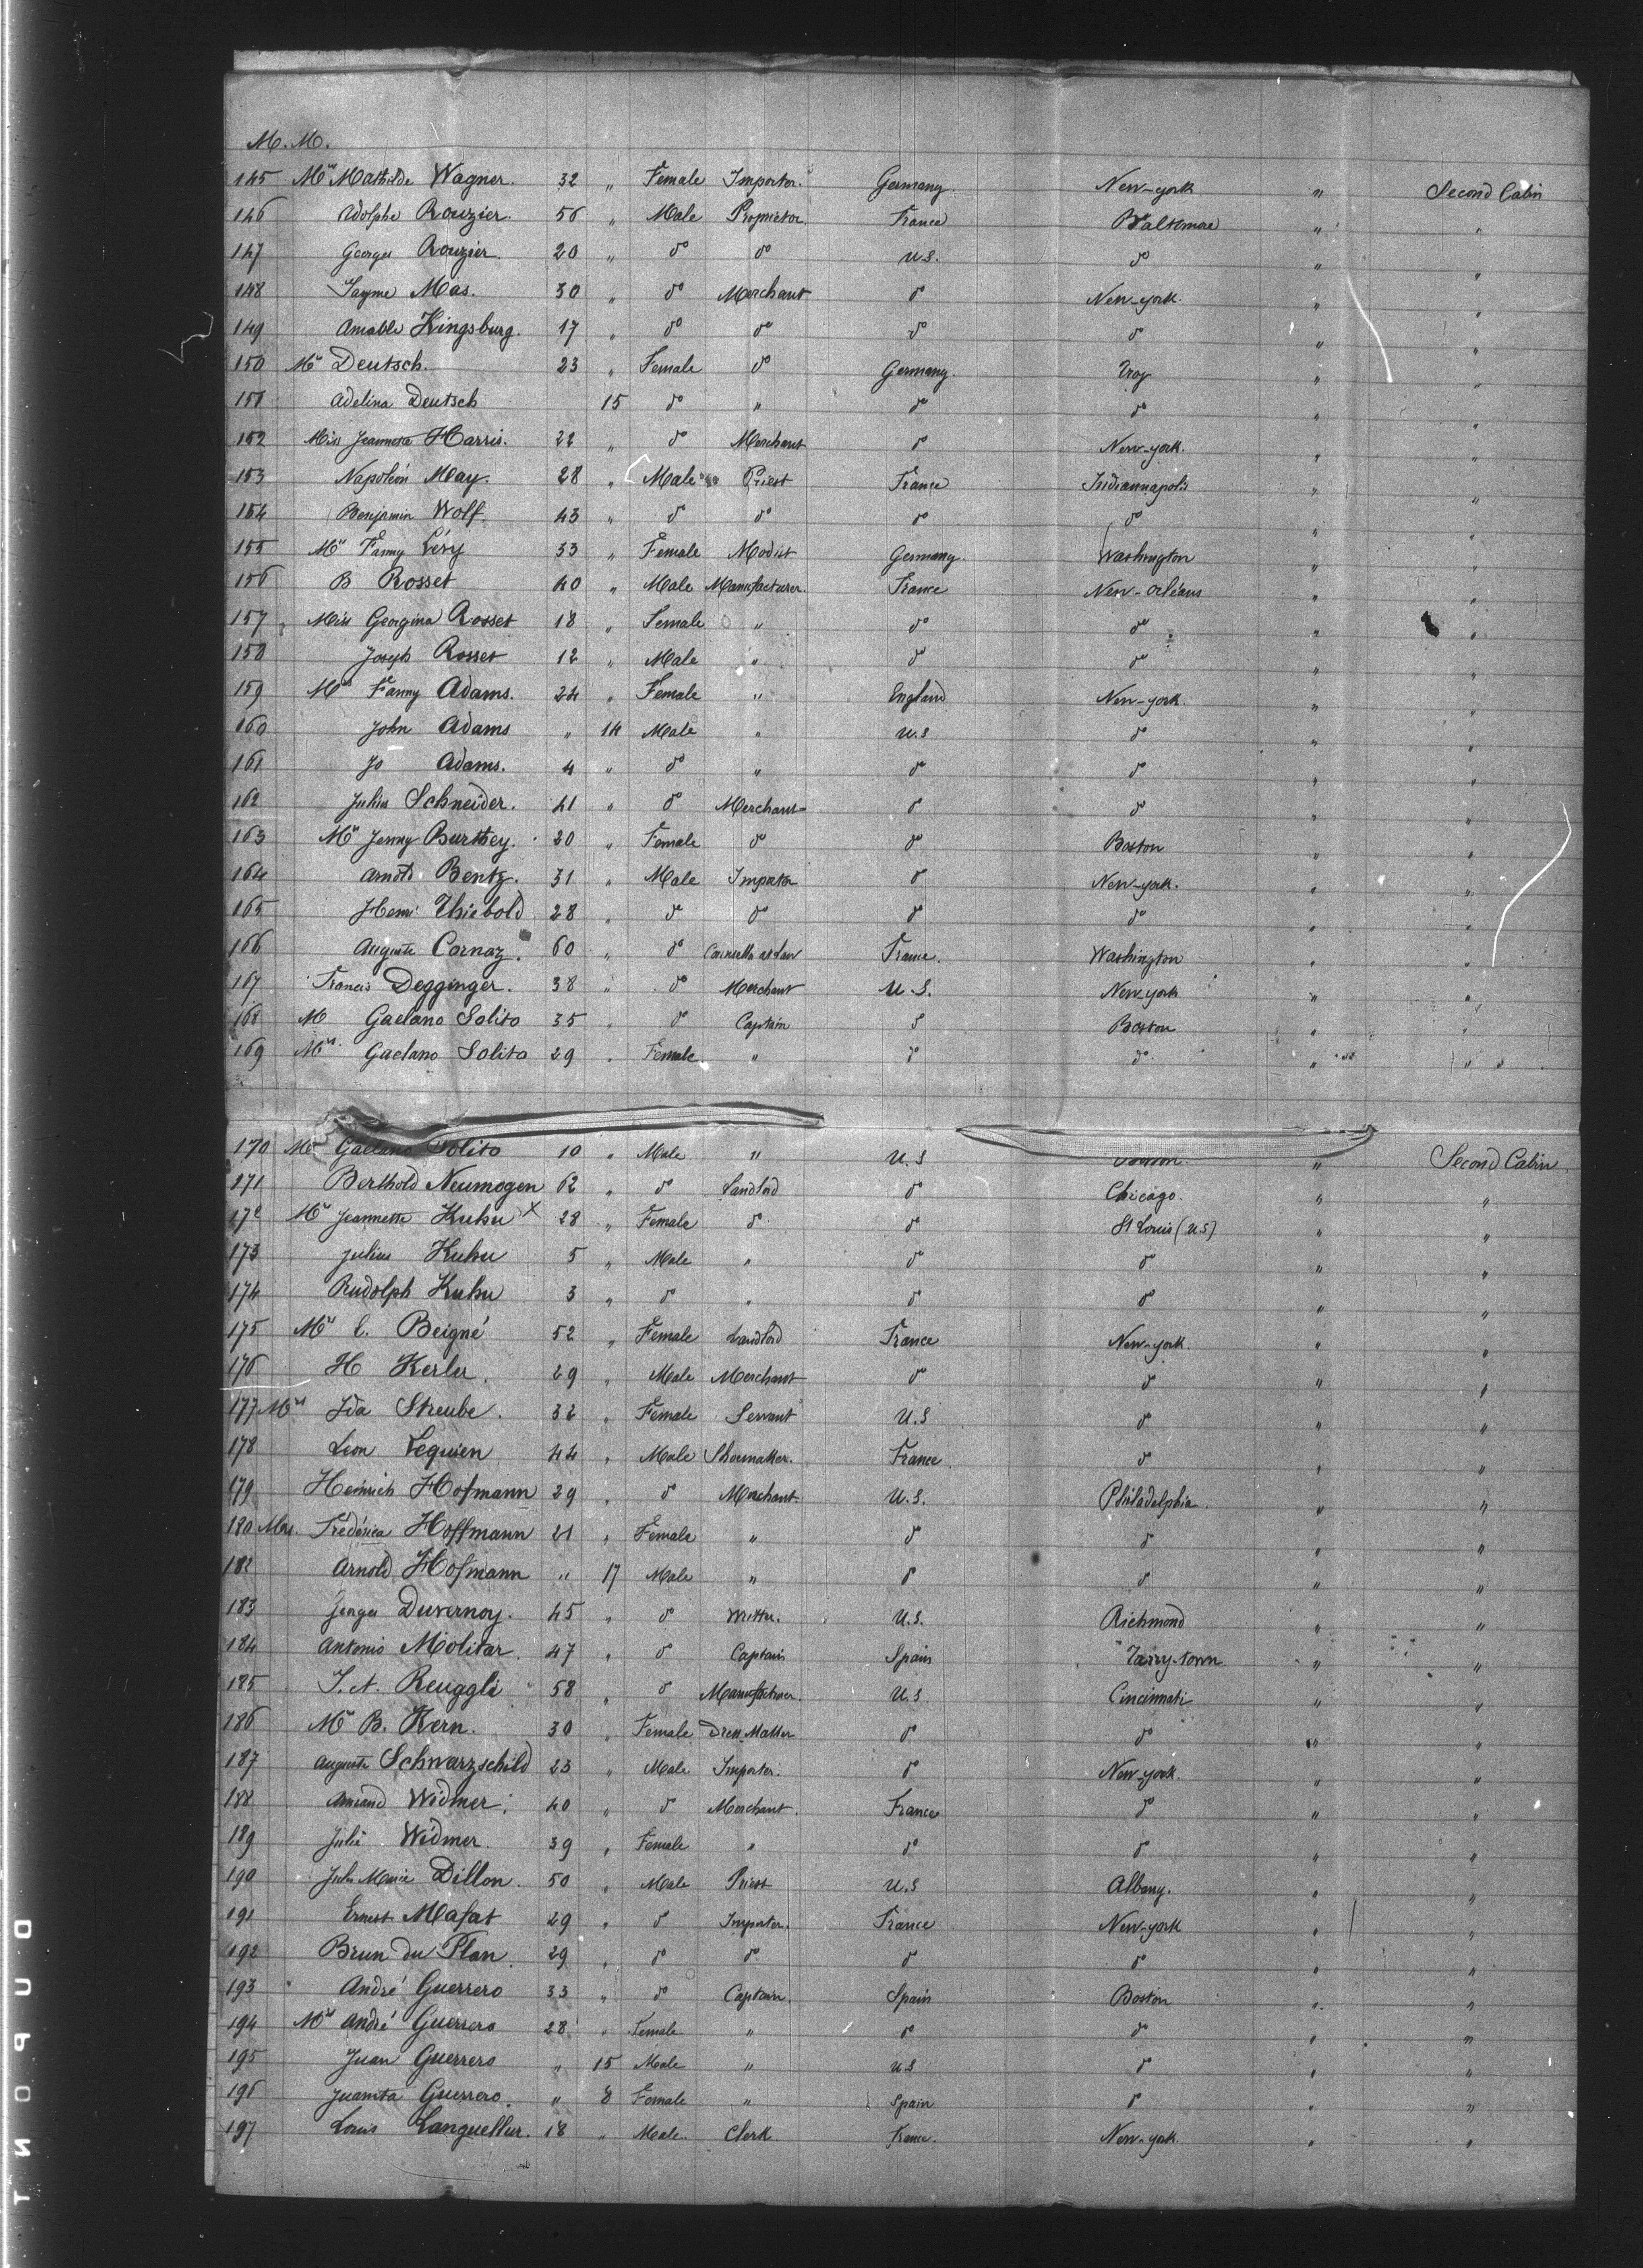 M. M.
145 Mrs Mathilde Wagner. 32 " Female Importer. Germany. New-york " Second Cabin
146 Adolphe Rouzier. 56 " Male Proprietor France Baltimore " "
147 Georges Rouzier. 20 " do do U.S. do " "
148 Jayme Mas. 30 " do Merchant do New-york. " "
149 Amable Kingsburg. 17 " do do do do " "
150 Mrs Deutsch. 23 " Female do Germany. Troy " "
151 Adelina Deutsch 15 do " do do " "
152 Miss Jeannetta Harris. 22 " do Merchant do New-york. " "
153 Napoléon May. 28 " Male Priest France Indiannapolis " "
154 Benjamin Wolf. 43 " do do do do " "
155 Mrs Fanny Lévy 33 " Female Modist Germany. Washington " "
156 B Rosset 40 " Male Manufacturer. France New-Orléans " "
157 Miss Georgina Rosset 18 " Female " do do " "
158 Joseph Rosset 12 " Male " do do " "
159 Mrs Fanny Adams. 24 " Female " England New-york. " "
160 John Adams " 14 Male " U.S do " "
161 Jo Adams. 4 " do " do do " "
162 Julius Schneider. 41 " do Merchant do do " "
163 Mrs Jenny Burthey. 20 " Female do do Boston " "
164 Arnold Bentz. 31 " Male Importer do New-york. " "
165 Henri Thiebold 28 " do do do do " "
166 Auguste Cornaz. 60 " do Counsellr at Law France. Washington " "
167 Francis Degginger. 38 " do Merchant U.S. New-york " "
168 M Gaetano Solito 35 " do Captain do Boston " "
169 Mrs. Gaetano Solito 29 " Female " do do " "
170 Mr Gaetano Solito 10 " Male " U.S Boston. " Second Cabin
171 Berthold Neumogen 62 " do Landlord do Chicago. " "
172 Mrs Jeannette Kuhn X 28 " Female do do St Louis (U.S) " "
173 Julius Kuhn 5 " Male " do do " "
174 Rudolph Kuhn 3 " do " do do " "
175 Mrs E. Beigné 52 " Female Landlord France New-york. " "
176 H Kerler. 29 " Male Merchant do do " "
177 Mrs Ida Streube. 32 " Female Servant U.S do " "
178 Léon Lequien 44 " Male Shoemakker. France do " "
179 Heinrich Hofmann 29 " do Merchant U.S. Philadelphia. " "
180 Mrs. Frédérica Hoffmann 21 " Female " do do " "
182 Arnold Hofmann " 17 Male " do do " "
183 Georges Duvernoy. 45 " do Writter. U.S. Richmond " "
184 Antonio Molitar. 47 " do Captain Spain Tarry-town " "
185 J. A. Reuggli 58 " do Manufacturer. U.S. Cincinnati " "
186 Mrs B. Kern. 30 " Female Dress Makker do do " "
187 Auguste Schwarzschild 23 " Male Importer. do New-york. " "
188 Armand Widmer. 40 " do Merchant. France do " "
189 Julie Widmer. 39 " Female " do do " "
190 Jules Marie Dillon. 50 " Male Priest U.S Albany. " "
191 Ernest Mafat 29 " do Importer. France New-york " "
192 Brun du Plan. 29 " do do do do " "
193 André Guerrero 33 " do Captain. Spain Boston " "
194 Mrs André Guerrero 28 " Female " do do " "
195 Juan Guerrero " 15 Male " U.S do " "
196 Juanita Guerrero. " 8 Female " Spain do " "
197 Louis Languellier. 18 " Male Clerk. France. New-york. " "
DUPONT